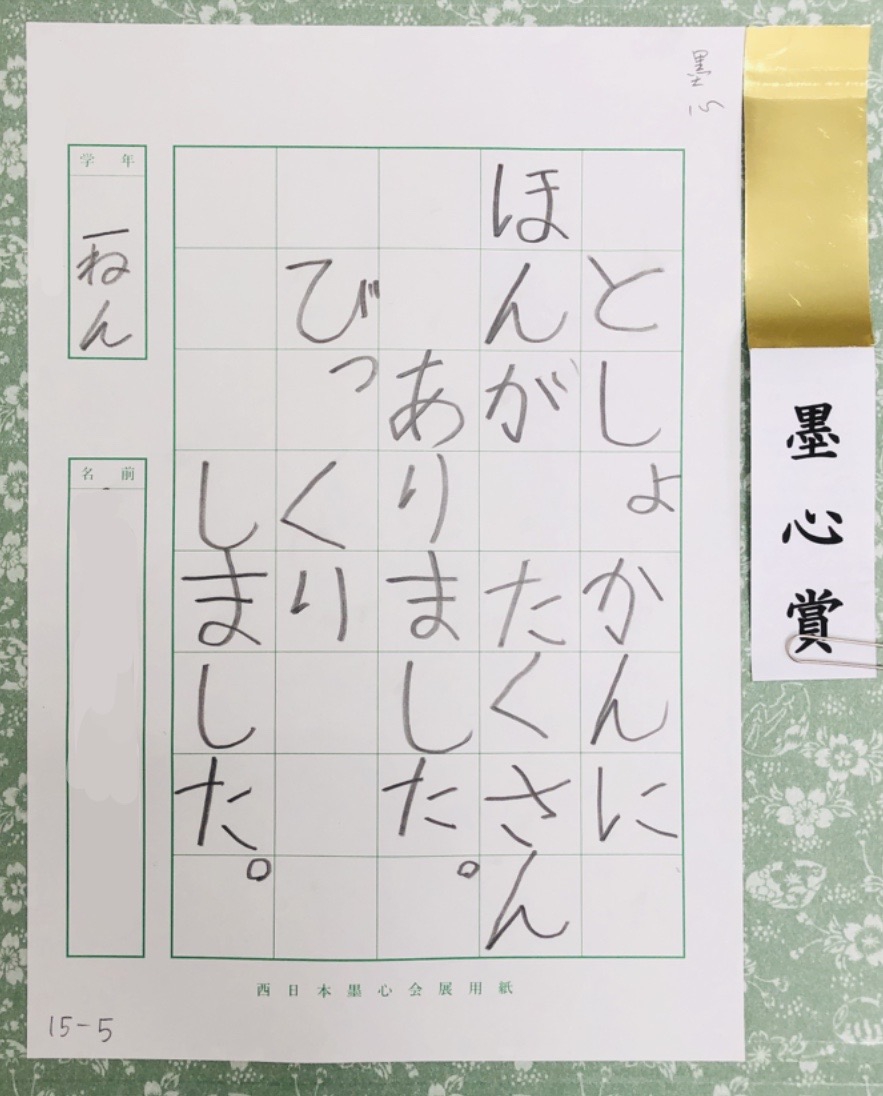 墨
15
墨心賞
としょかんに
ほんが たくさん
ありました。
びっくり
しました。
学年
一ねん
名前
西日本墨心会展用紙
15-5